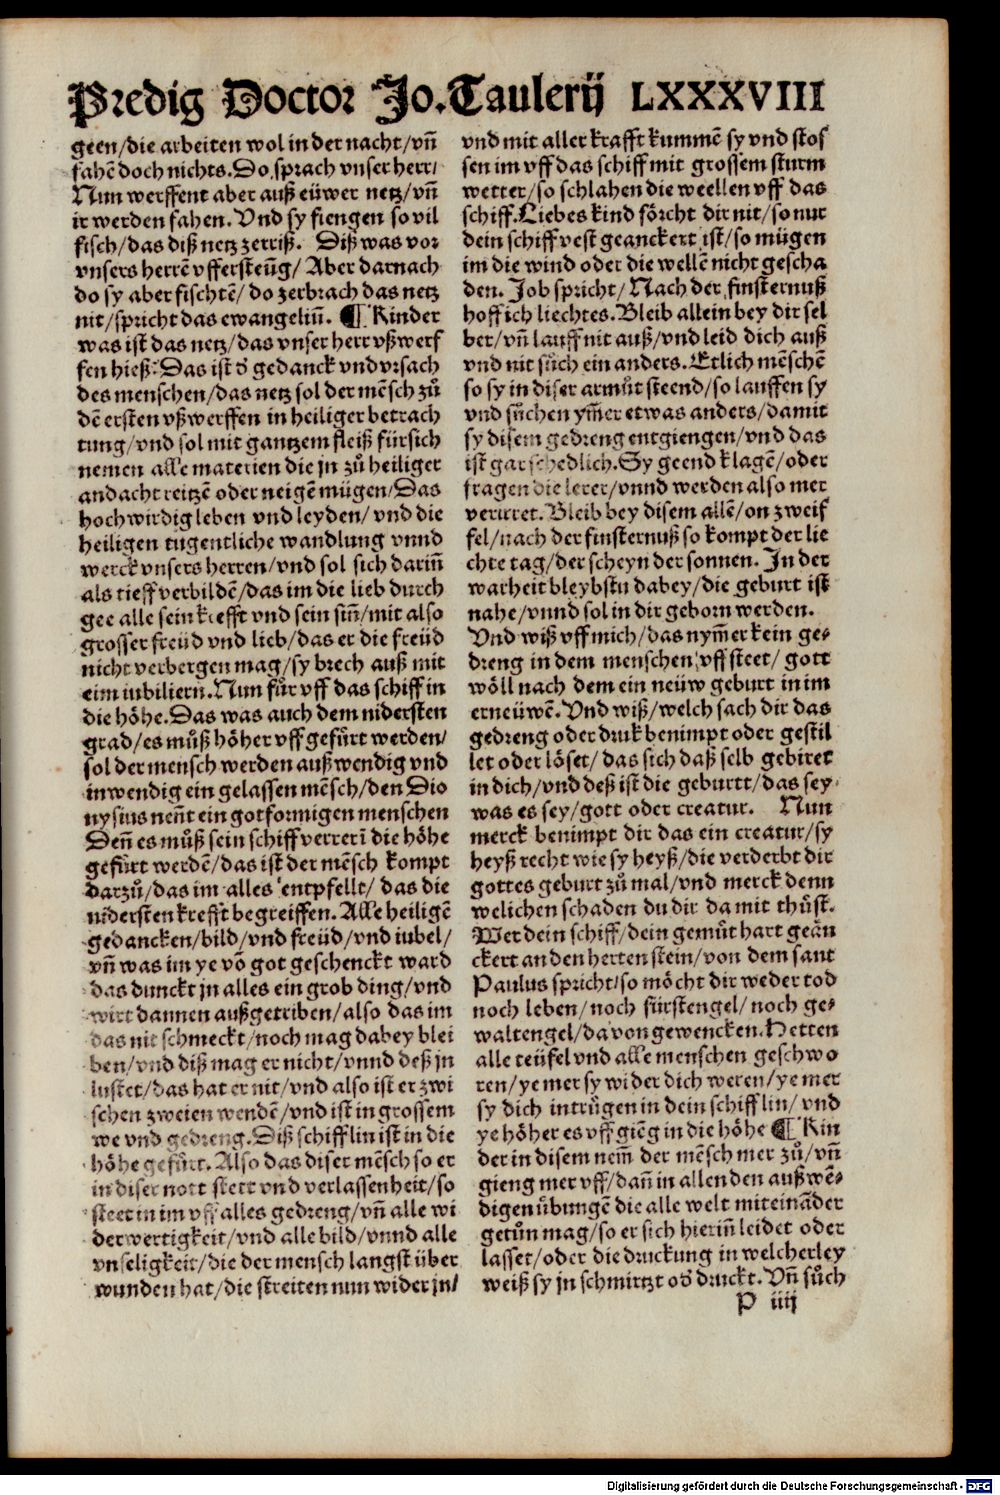 Predig Doctor Jo. Taulerij LXXXVIII
geen/die arbeiten wol in der nacht/vñ
fahẽ doch nichts. Do sprach vnser herr/
Nun werffent aber auß eüwer netz/vñ
ir werden fahen. Vnd sy fiengen so vil
fisch/das diß netz zerriß. Diß was vor
vnsers herrẽ vffersteũg/ Aber darnach
do sy aber fischtẽ/ do zerbrach das netz
nit/spricht das ewangeliũ. ¶ Kinder
was ist das netz/das vnser herr vßwerf
fen hieß: Das ist d̕ gedanck vnd vrsach
des menschen/das netz sol der mẽsch zů
dẽ ersten vßwerffen in heiliger betrach
tung/vnd sol mit gantzem fleiß fürsich
nemen alle materien die jn zů heiliger
andacht reitzẽ oder neigẽ mügen/Das
hochwirdig leben vnd leyden/ vnd die
heiligen tugentliche wandlung vnnd
werck vnsers herren/vnd sol sich dariñ
als tieff verbildẽ/das im die lieb durch
gee alle sein krefft vnd sein siñ/mit also
grosser freüd vnd lieb/das er die freüd
nicht verbergen mag/sy brech auß mit
eim iubiliern. Nun für vff das schiff in
die höhe. Das was auch dem nidersten
grad/es můß höher vff gefürt werden/
sol der mensch werden außwendig vnd
inwendig ein gelassen mẽsch/den Dio
nysius neñt ein gotformigen menschen
Deñ es můß sein schiff verrer ĩ die höhe
gefürt werdẽ/das ist der mẽsch kompt
darzů/das im alles entpfellt/ das die
nidersten krefft begreiffen. Alle heiligẽ
gedancken/bild/vnd freüd/vnd iubel/
vñ was im ye võ got geschenckt ward
das dunckt jn alles ein grob ding/vnd
wirt dannen außgetriben/also das im
das nit schmeckt/noch mag dabey blei
ben/vnd diß mag er nicht/vnnd deß jn
lustet/das hat er nit/vnd also ist er zwi
schen zweien wendẽ/vnd ist in grossem
we vnd gedreng. Diß schifflin ist in die
höhe gefürt. Also das diser mẽsch so er
in diser nott stett vnd verlassenheit/so
steet in im vff alles gedreng/vñ alle wi
derwertigkeit/vnd alle bild/vnnd alle
vnseligkeit/die der mensch langst über
wunden hat/die streiten nun wider jn/
vnd mit aller krafft kummẽ sy vnd stos
sen im vff das schiff mit grossem sturm
wetter/so schlahen die weellen vff das
schiff. Liebes kind förcht dir nit/so nur
dein schiff vest geanckert ist/so mügen
im die wind oder die wellẽ nicht gescha
den. Job spricht/ Nach der finsternuß
hoff ich liechtes. Bleib allein bey dir sel
ber/vñ lauff nit auß/vnd leid dich auß
vnd nit sůch ein anders. Etlich mẽschẽ
so sy in diser armůt steend/so lauffen sy
vnd sůchen ym̃er etwas anders/damit
sy disem gedreng entgiengen/vnd das
ist gar schedlich. Sy geend klagẽ/oder
fragen die lerer/vnnd werden also mer
verirret. Bleib bey disem allẽ/on zweif
fel/nach der finsternuß so kompt der lie
chte tag/der scheyn der sonnen. In der
warheit bleybstu dabey/die geburt ist
nahe/vnnd sol in dir geborn werden.
Vnd wiß vff mich/das nym̃er kein ge⸗
dreng in dem menschen vff steet/ gott
wöll nach dem ein neüw geburt in im
erneüwẽ. Vnd wiß/welch sach dir das
gedreng oder druk benimpt oder gestil
let oder löset/das sich daß selb gebiret
in dich/vnd deß ist die geburtt/das sey
was es sey/gott oder creatur. Nun
merck benimpt dir das ein creatur/sy
heyß recht wie sy heyß/die verderbt dir
gottes geburt zů mal/vnd merck denn
welichen schaden du dir da mit thůst.
Wer dein schiff/dein gemůt hart geãn
ckert an den herten stein/von dem sant
Paulus spricht/so möcht dir weder tod
noch leben/noch fürstengel/noch ge⸗
waltengel/da von gewencken. Hetten
alle teüfel vnd alle menschen geschwo
ren/ye mer sy wider dich weren/ye mer
sy dich intrügen in dein schifflin/ vnd
ye höher es vff giẽg in die höhe ¶ Kin
der in disem nem̃ der mẽsch mer zů/vñ
gieng mer vff/dañ in allen den außwẽ⸗
digen übungẽ die alle welt miteinãder
getůn mag/so er sich hieriñ leidet oder
lasset/oder die druckung in welcherley
weiß sy jn schmirtzt od̕ druckt. Vñ sůch
P iiij
Digitalisierung gefördert durch die Deutsche Forschungsgemeinschaft - DFG